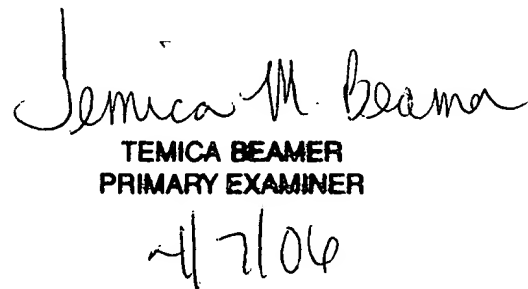 Temica M. Beamer
TEMICA BEAMER
PRIMARY EXAMINER
4/7/06